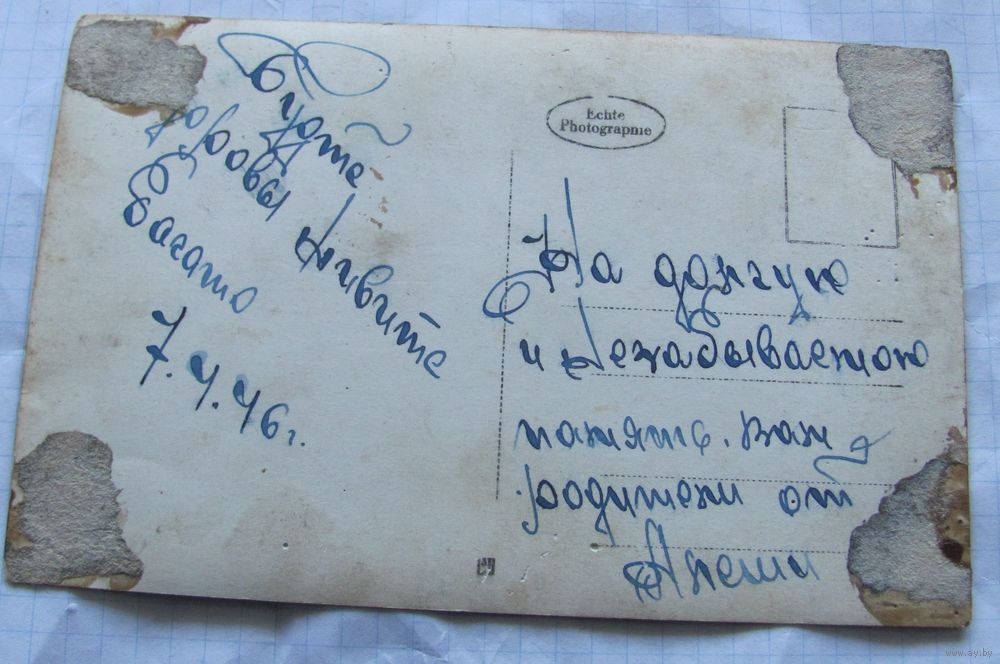 Будте
здоровы живите
багато
7.4.46г.
Echte
Photographie
На долгую
и незабываемою
память. вам
родители от
Алеши
www.ay.by